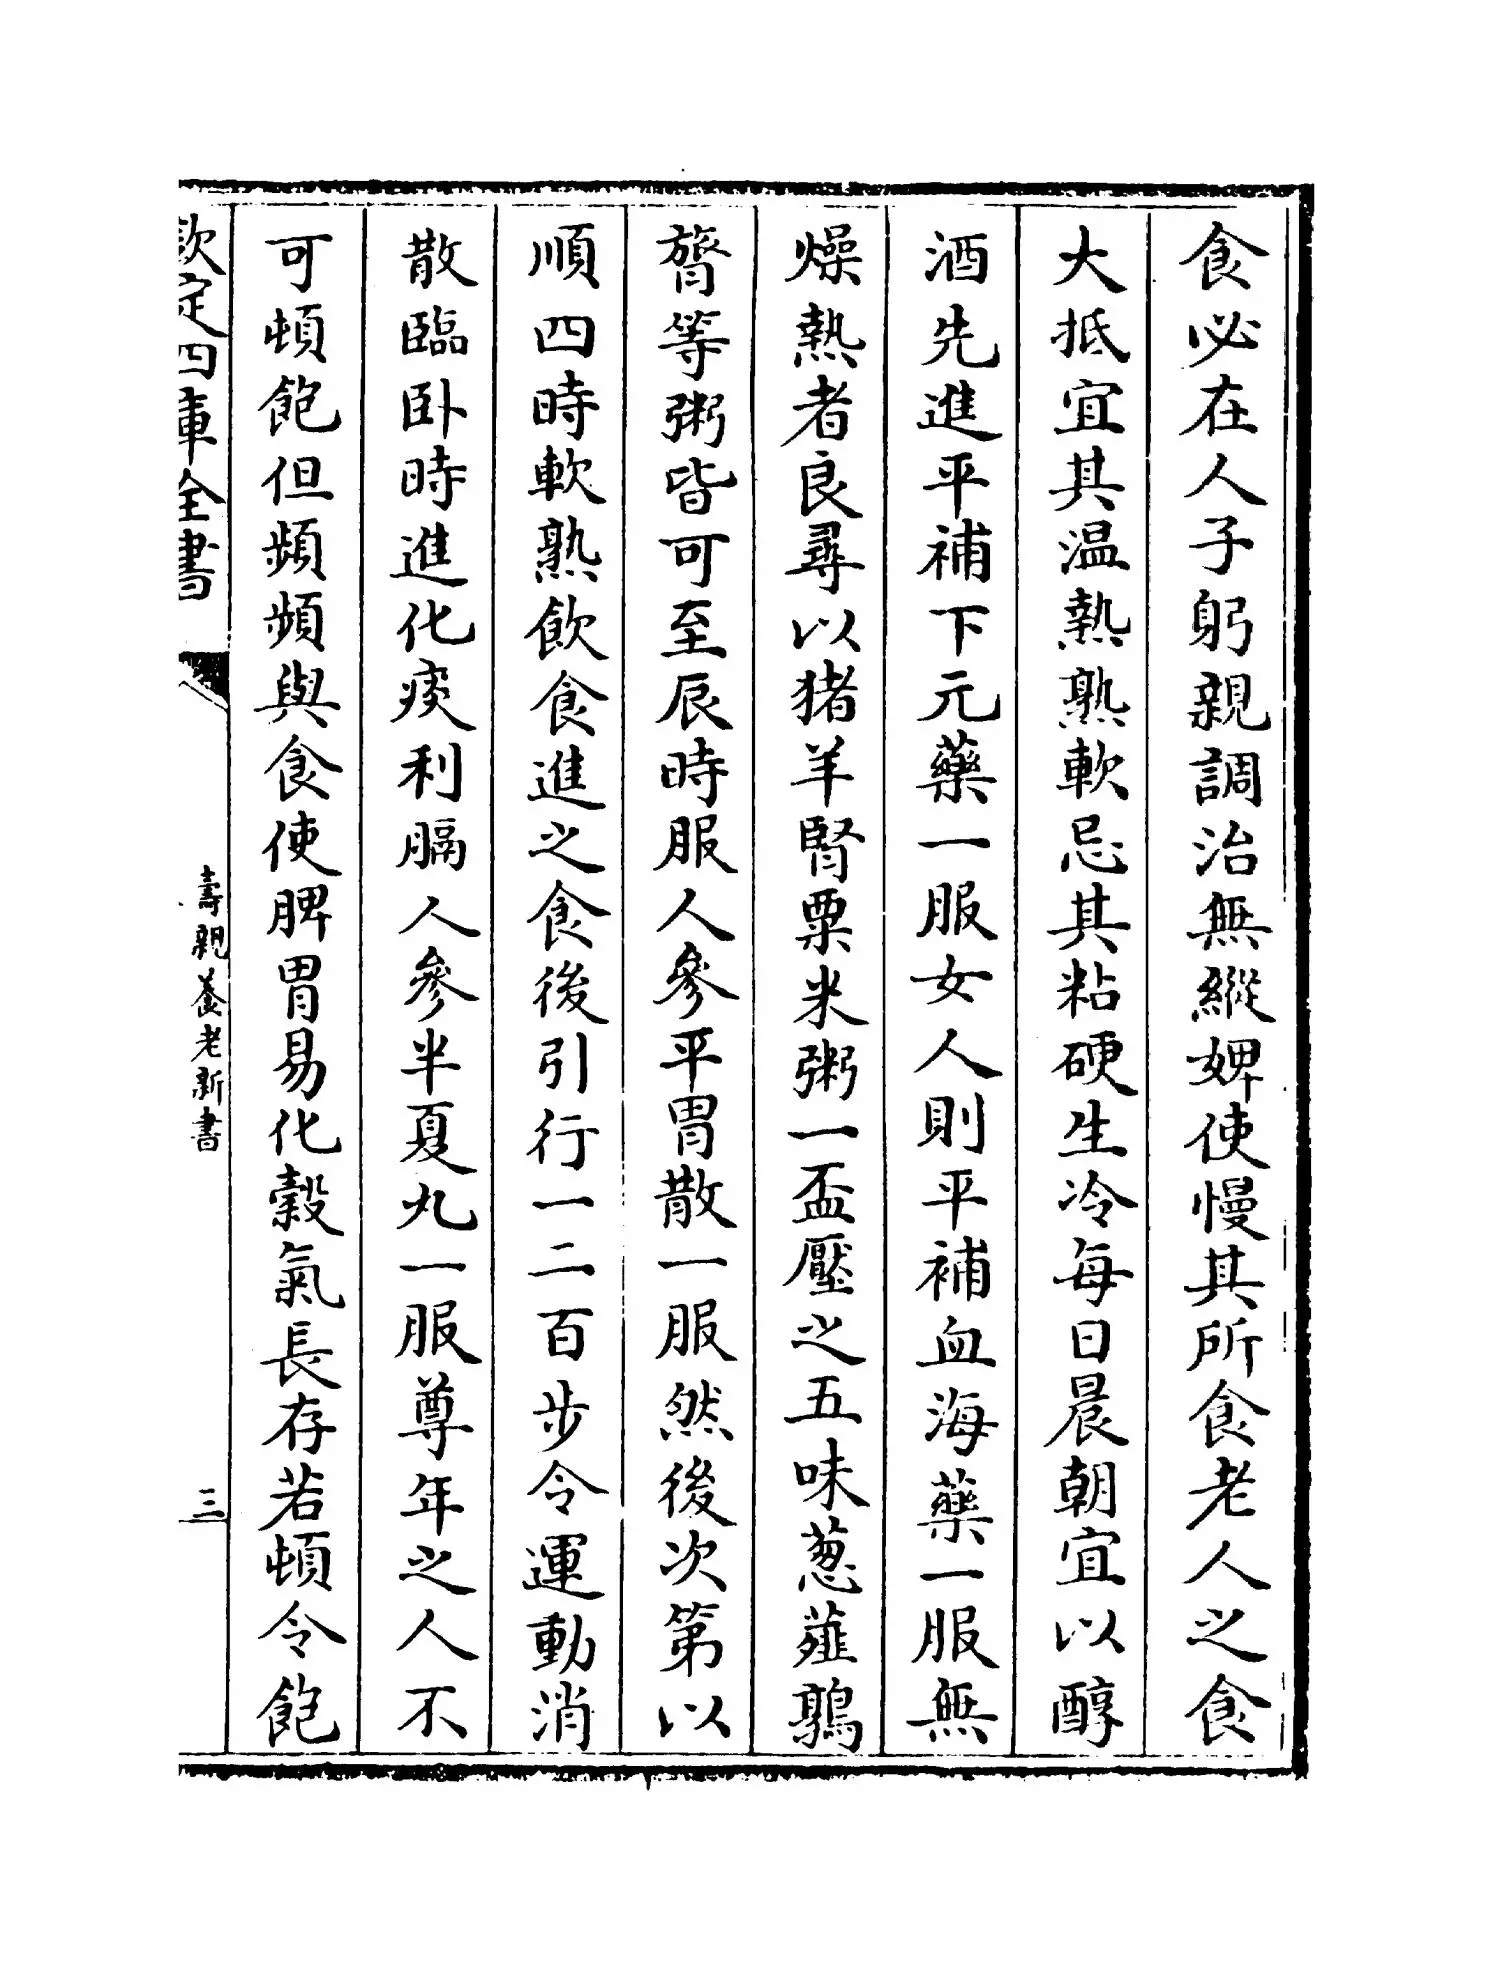 食必在人子躬親調治無縱婢使慢其所食老人之食
大抵宜其温熱熟軟忌其粘硬生冷每日晨朝宜以醇
酒先進平補下元藥一服女人則平補血海藥一服無
燥熱者良尋以猪羊腎粟米粥一盃壓之五味葱薤鶉
膂等粥皆可至辰時服人參平胃散一服然後次第以
順四時軟熟飲食進之食後引行一二百步令運動消
散臨卧時進化痰利膈人參半夏丸一服尊年之人不
可頓飽但頻頻與食使脾胃易化穀氣長存若頓令飽
欽定四庫全書
壽親養老新書
三